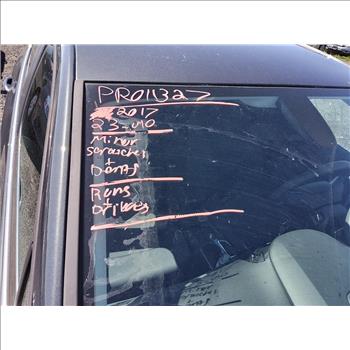 PRO11327
2017
Minor
scratches
+
Dents
Runs
+
Drives